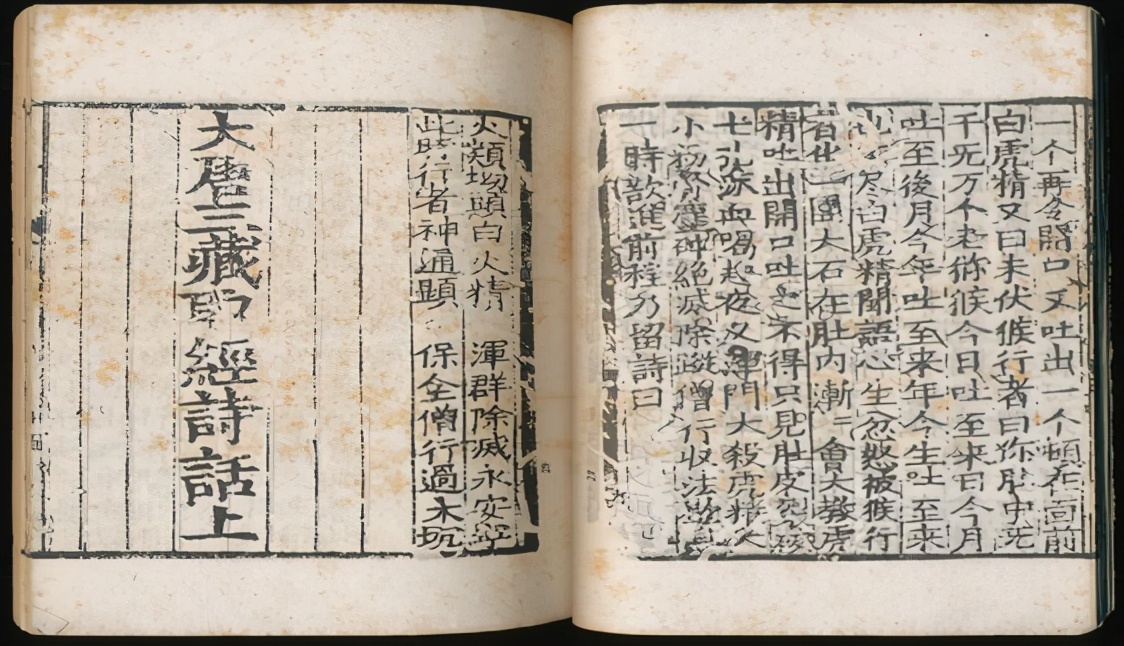 一个再令開口又吐出一个頓在面前
白虎精又曰未伏猴行者曰你肚中无
千无万个老獼猴今日吐至来日今月
吐至後月今年吐至来年今生吐至来
生也不尽白虎精聞語心生忿怒被猴行
者化一團大石在肚内漸〻會大 虎
精吐出開口吐之不得只見肚皮裂破
七孔流血喝起夜叉渾門大殺虎精大
小粉骨塵碎絕滅除蹤僧行收法歇息
一時欲進前程乃留詩曰
火類坳頭白火精 渾群除滅永安寧
此時行者神通顯 保全僧行過大坑
大唐三藏取經詩話上